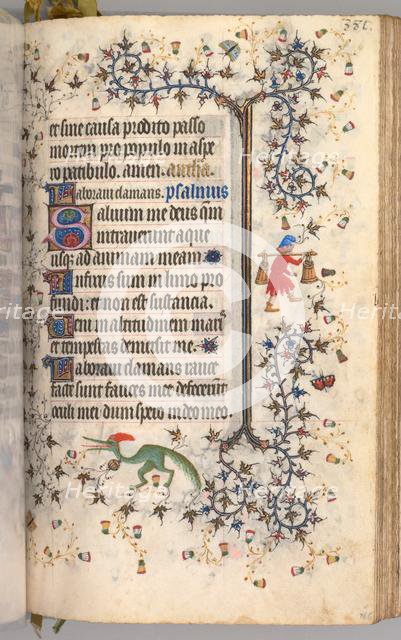 386.
et sine causa prodito passo
mortem pro populo in aspe
ro patibulo. amen. antiha.
Laboraui clamans. psalmus
Saluum me deus qm
intrauerunt aque
usq; ad animam meam.
Infixus sum in limo pro
fundi: et non est substancia.
Veni in altitudinem maris
et tempestas demersit me.
Laboraui clamans rauce
facte sunt fauces mee defecerunt
oculi mei dum spero in deo meo.
Heritage
Heritage
Heritage
Heritage
Heritage